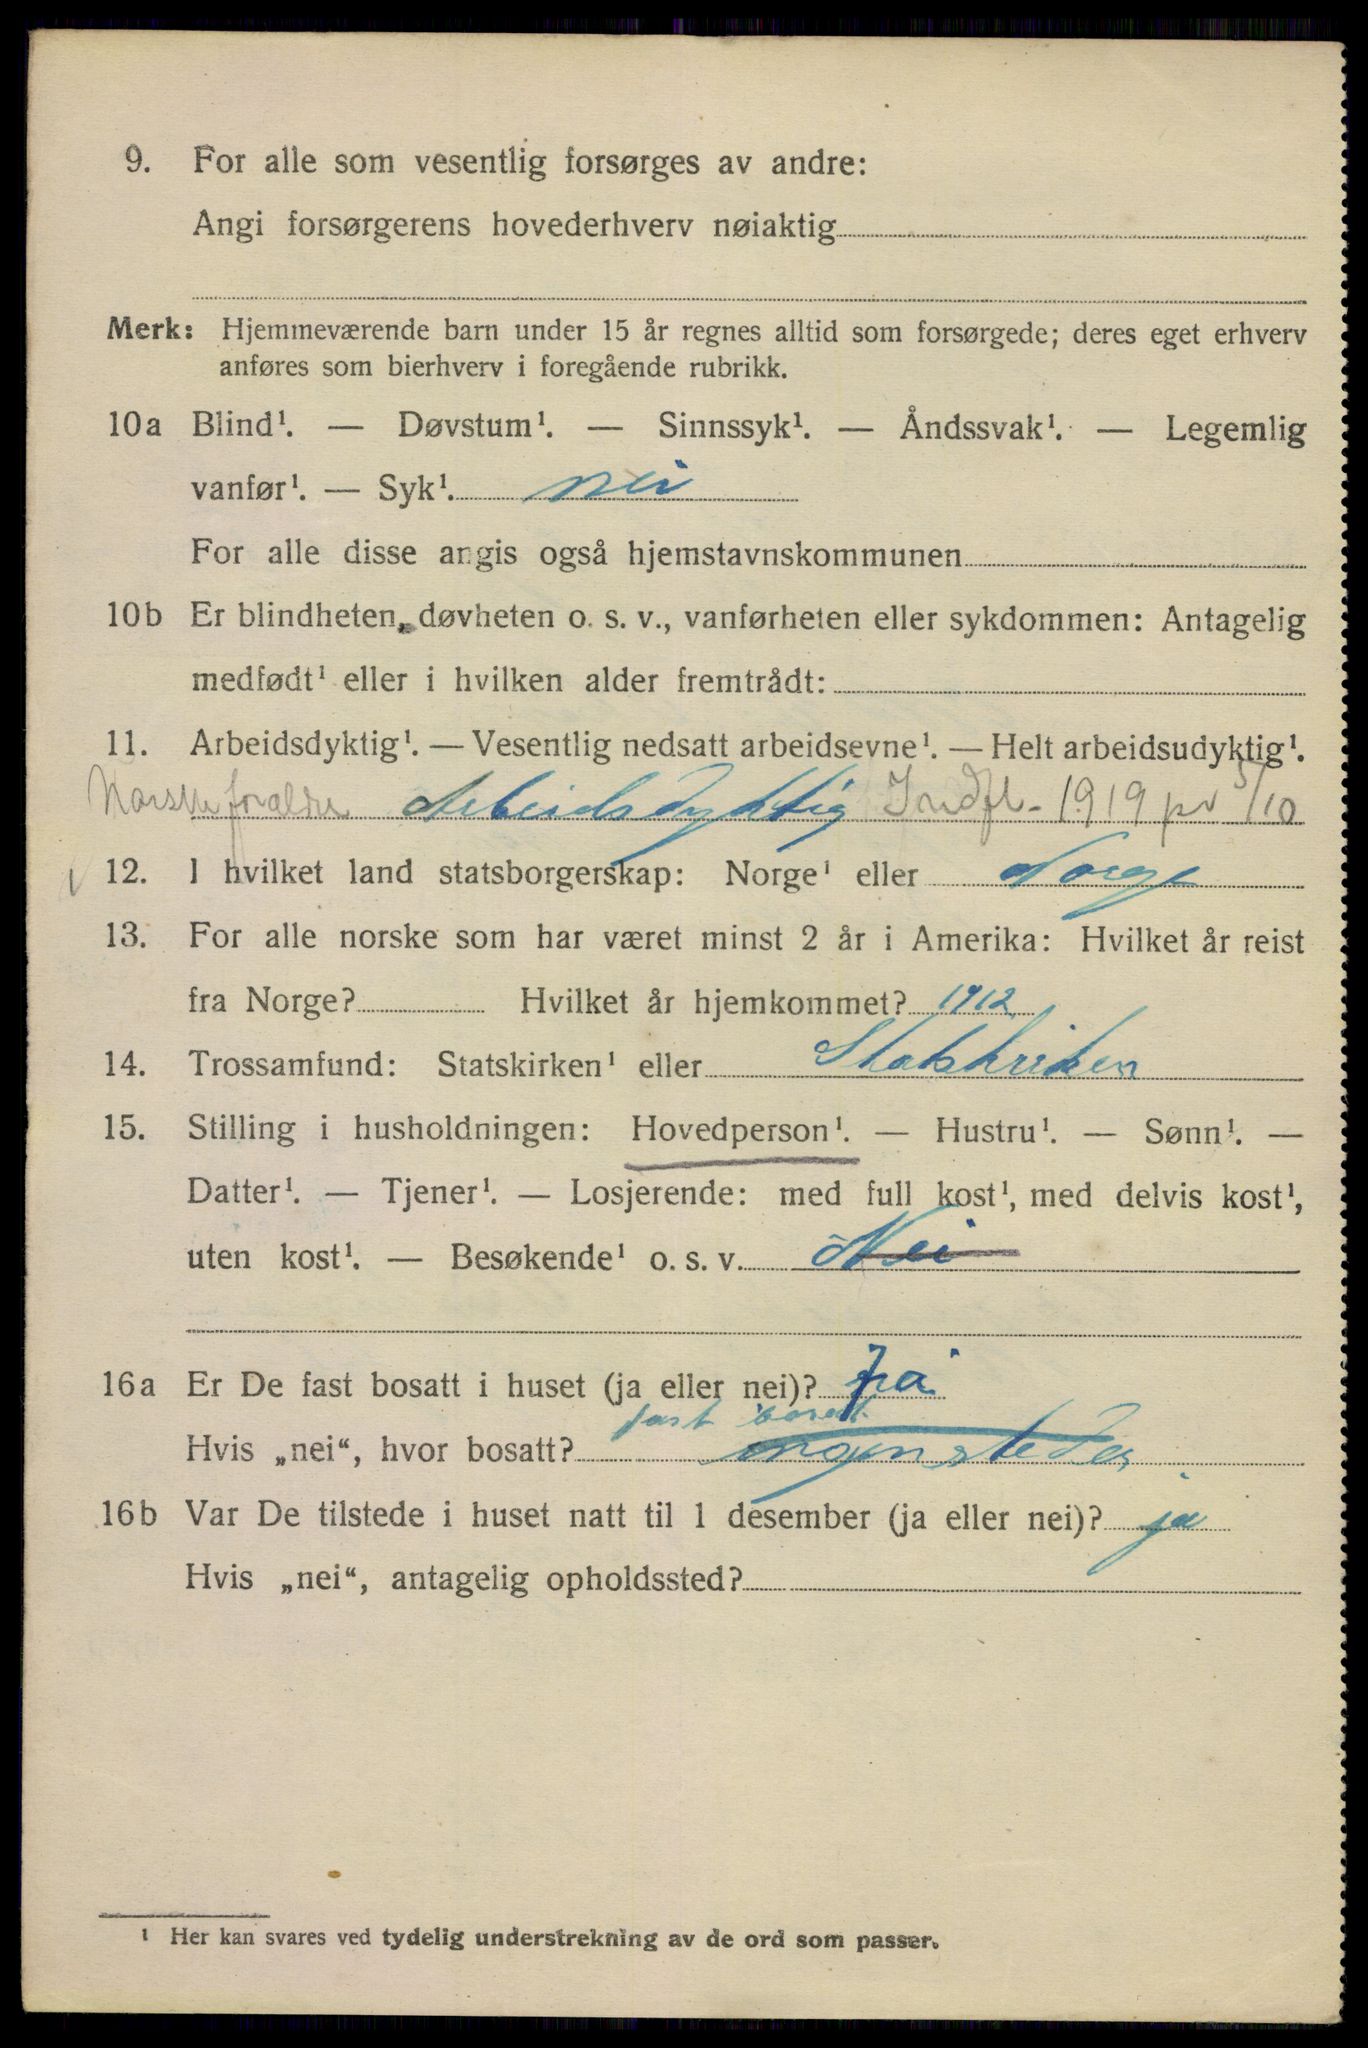 9. For alle som vesentlig forsørges av andre:
Angi forsørgerens hovederhverv nøiaktig
Merk: Hjemmeværende barn under 15 år regnes alltid som forsørgede; deres eget erhverv
anføres som bierhverv i foregående rubrikk.
10a Blind¹. — Døvstum¹. — Sinnssyk¹. — Åndssvak¹. — Legemlig
vanfør¹. — Syk¹. nei
For alle disse angis også hjemstavnskommunen
10b Er blindheten, døvheten o. s. v., vanførheten eller sykdommen: Antagelig
medfødt¹ eller i hvilken alder fremtrådt:
11. Arbeidsdyktig¹. — Vesentlig nedsatt arbeidsevne¹. — Helt arbeidsudyktig¹.
Norske foraldre Arbeidsdyktig Indfl. 1919 pr 5/10
12. I hvilket land statsborgerskap: Norge¹ eller Norge
13. For alle norske som har været minst 2 år i Amerika: Hvilket år reist
fra Norge? Hvilket år hjemkommet? 1912
14. Trossamfund: Statskirken¹ eller Statskirken
15. Stilling i husholdningen: Hovedperson¹. — Hustru¹. — Sønn¹. —
Datter¹. — Tjener¹. — Losjerende: med full kost¹, med delvis kost¹,
uten kost¹. — Besøkende¹ o. s. v. Nei
16a Er De fast bosatt i huset (ja eller nei)? ja
fast bosat
Hvis „nei“, hvor bosatt? ingensteder
16b Var De tilstede i huset natt til 1 desember (ja eller nei)? ja
Hvis „nei“, antagelig opholdssted?
¹ Her kan svares ved tydelig understrekning av de ord som passer.